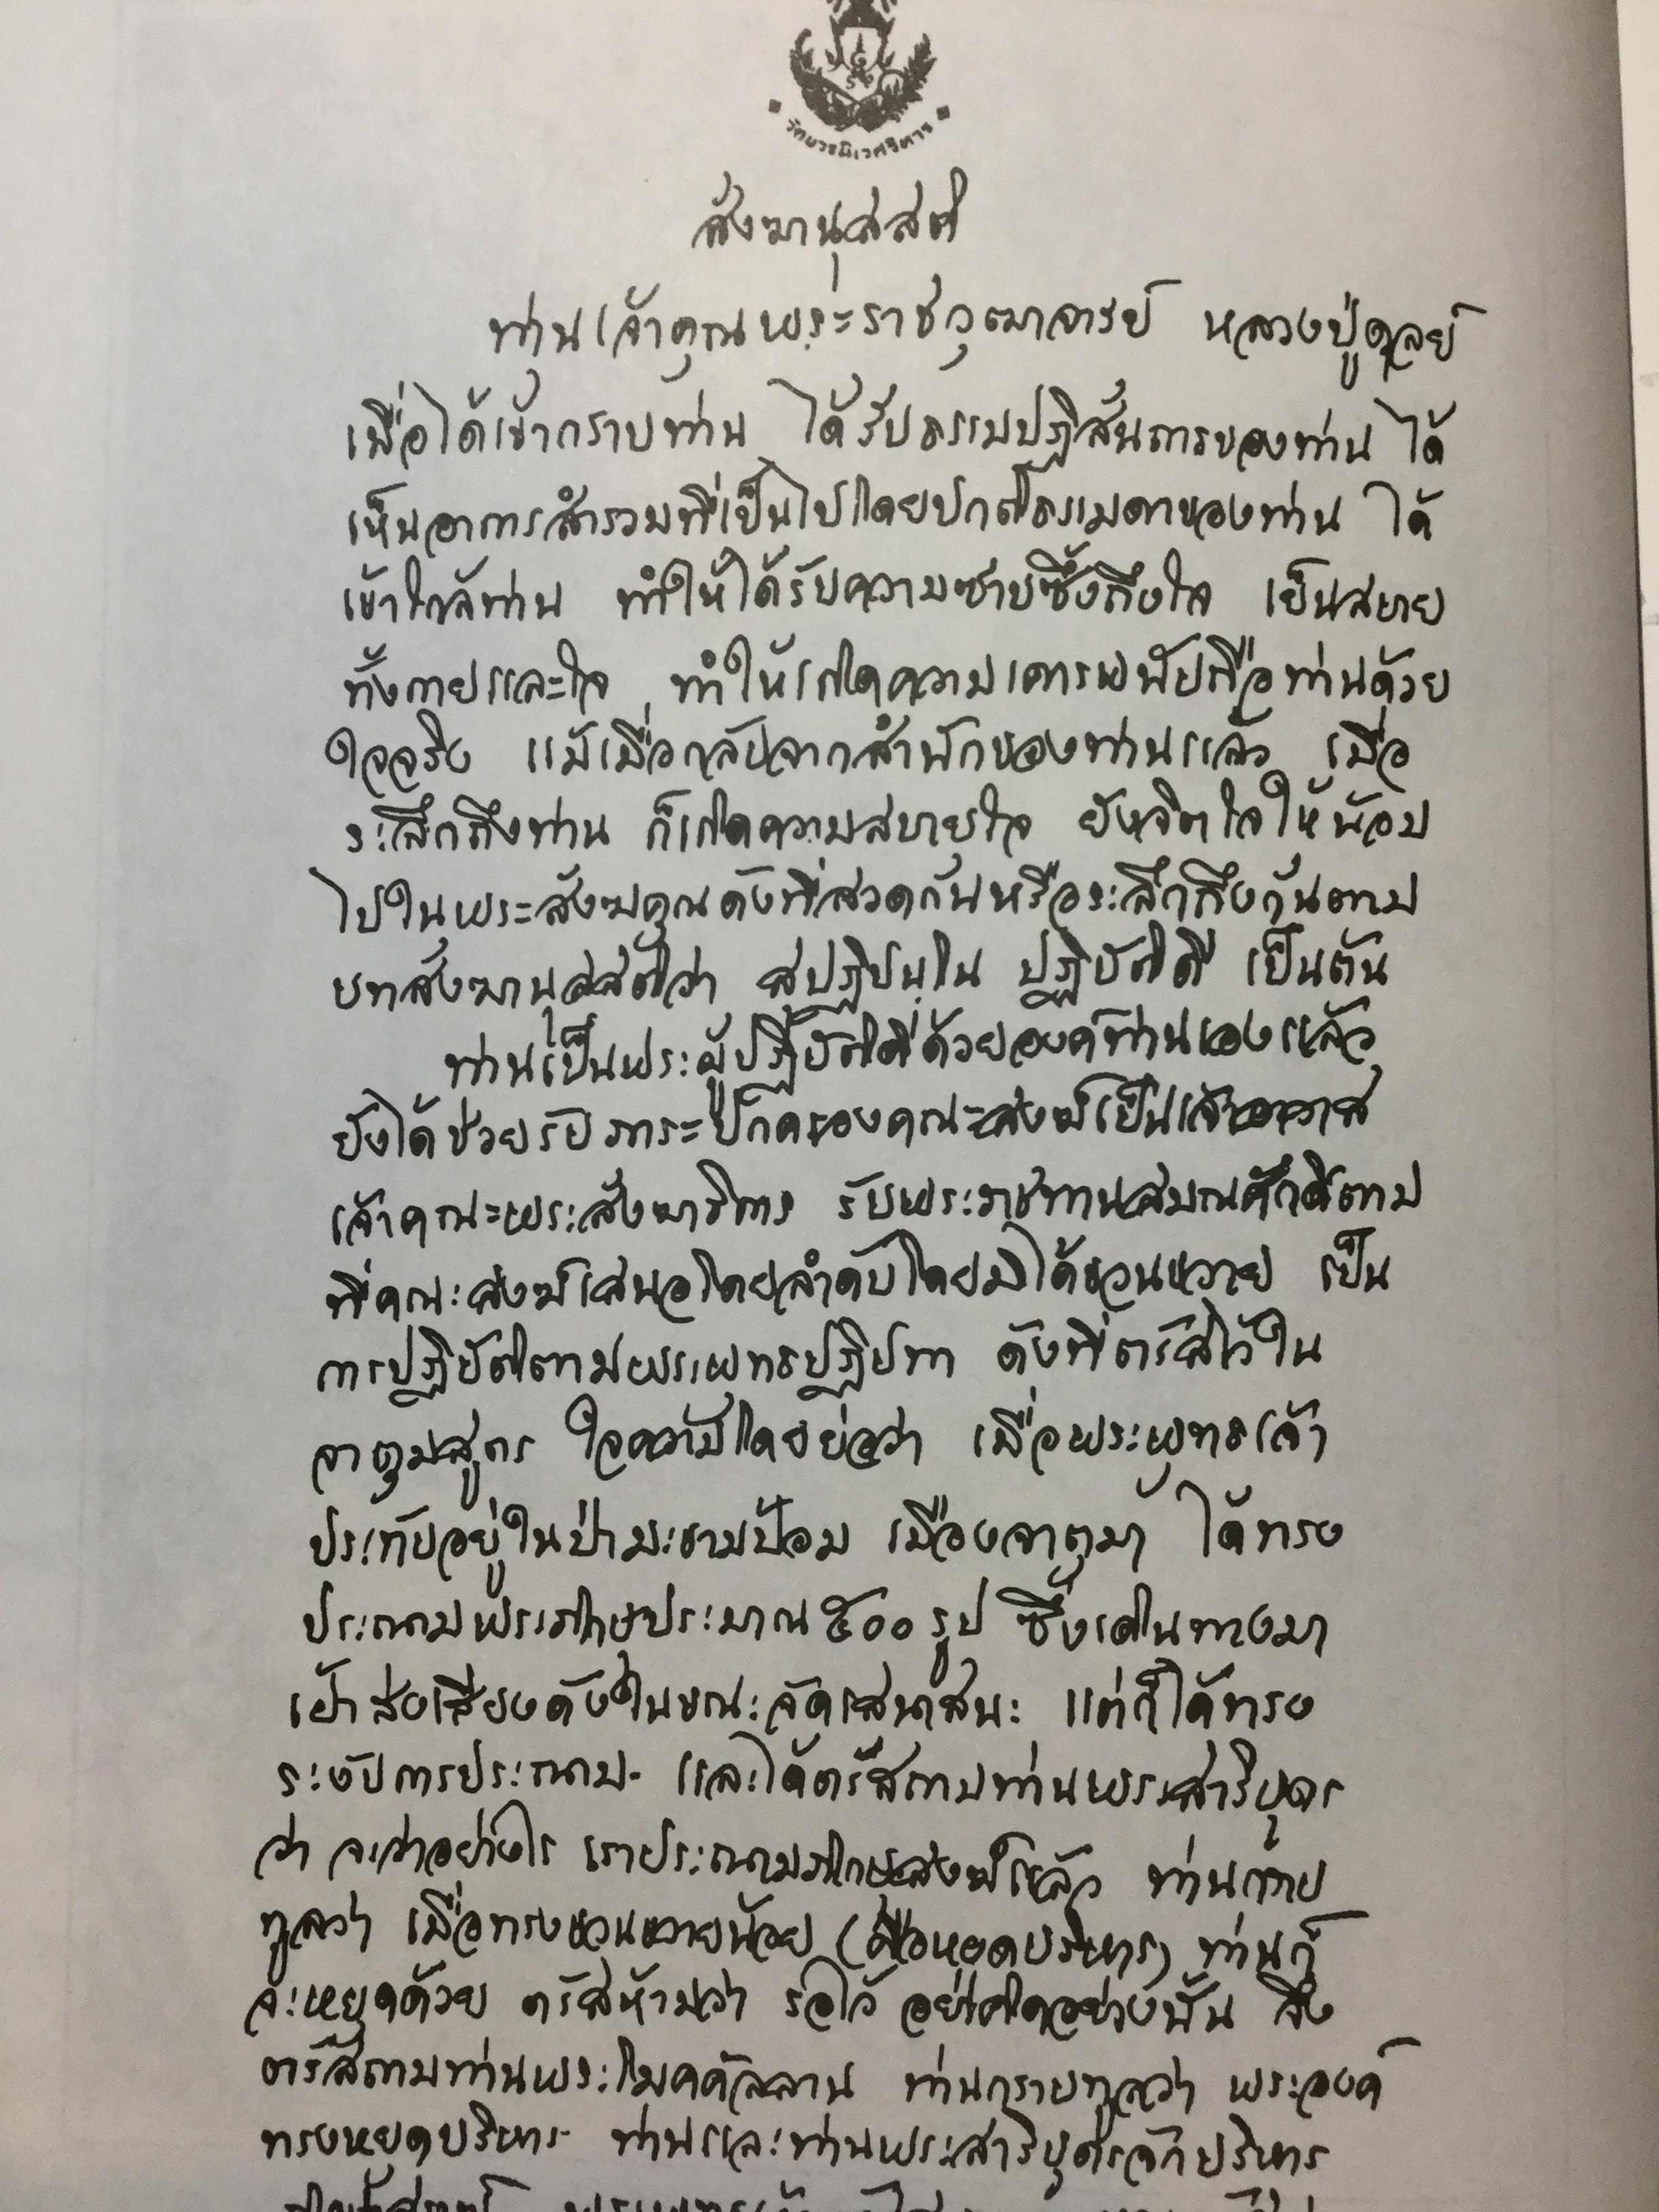 วัดบวรนิเวศวิหาร
สังฆานุสสติ
ท่านเจ้าคุณพระราชวุฒาจารย์ หลวงปู่ดุลย์
เมื่อได้เข้ากราบท่าน ได้รับธรรมปฏิสันถารของท่าน ได้
เห็นอาการสำรวมที่เป็นไปโดยปกติธรรมดาของท่าน ได้
เข้าใกล้ท่าน ทำให้ได้รับความซาบซึ้งถึงใจ เย็นสบาย
ทั้งกายและใจ ทำให้เกิดความเคารพนับถือท่านด้วย
ใจจริง แม้เมื่อกลับจากสำนักของท่านแล้ว เมื่อ
ระลึกถึงท่าน ก็เกิดความสบายใจ ยังจิตใจให้น้อม
ไปในพระสังฆคุณดังที่สวดกันหรือระลึกถึงกันตาม
บทสังฆานุสสติว่า สุปฏิปนฺโน ปฏิบัติดี เป็นต้น
ท่านเป็นพระผู้ปฏิบัติดีด้วยองค์ท่านเองแล้ว
ยังได้ช่วยรับภาระปกครองคณะสงฆ์เป็นเจ้าอาวาส
เจ้าคณะพระสังฆาธิการ รับพระราชทานสมณศักดิ์ตาม
ที่คณะสงฆ์เสนอโดยลำดับโดยมิได้ขวนขวาย เป็น
การปฏิบัติตามพระพุทธปฏิปทา ดังที่ตรัสไว้ใน
จาตุมสูตร ใจความโดยย่อว่า เมื่อพระพุทธเจ้า
ประทับอยู่ในป่ามะขามป้อม เมืองจาตุมา ได้ทรง
ประณามพระภิกษุประมาณ ๕๐๐ รูป ซึ่งเดินทางมา
เฝ้าส่งเสียงดังในขณะจัดเสนาสนะ แต่ก็ได้ทรง
ระงับการประณาม และได้ตรัสถามท่านพระสารีบุตร
ว่า จะว่าอย่างไร เราประณามภิกษุสงฆ์แล้ว ท่านกราบ
ทูลว่า เมื่อทรงขวนขวายน้อย (คือหยุดบริหาร) ท่านก็
จะหยุดด้วย ตรัสห้ามว่า รอไว้ อย่าคิดอย่างนั้น จึง
ตรัสถามท่านพระโมคคัลลาน ท่านกราบทูลว่า พระองค์
ทรงหยุดบริหาร ท่านและท่านพระสารีบุตรจักบริหาร